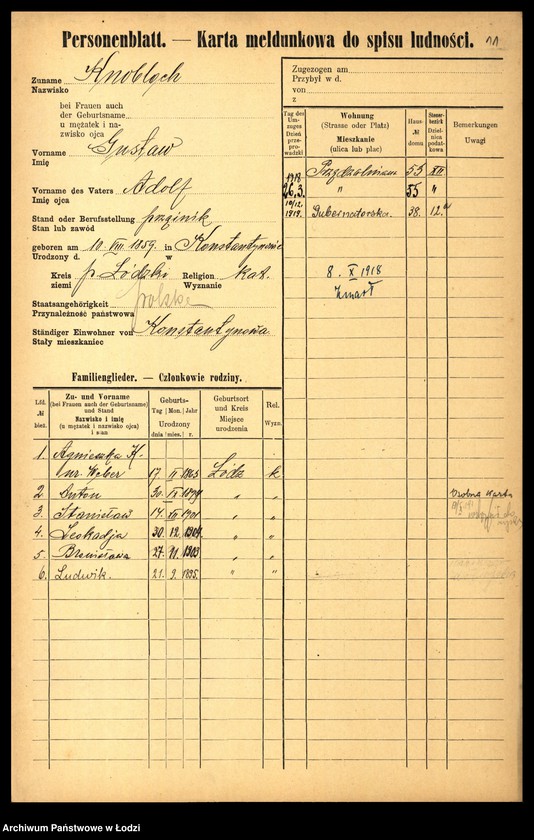 Personenblatt. — Karta meldunkowa do spisu ludności. 11
Zuname Knobloch
Nazwisko
bei Frauen auch
der Geburtsname
u mężatek i na-
zwisko ojca
Vorname Gustaw
Imię
Vorname des Vaters Adolf
Imię ojca
Stand oder Berufsstellung
Stan lub zawód
geboren am 10. VIII. 1859. in Konstantynowie
Urodzony d. w
Kreis p. Łódzki Religion kat.
ziemi Wyznanie
Staatsangehörigkeit polska
Przynależność państwowa
Ständiger Einwohner von Konstantynowa
Stały mieszkaniec
Zugezogen am
Przybył w d.
von
z
Tag des Umzuges Dzień przeprowadzki
Wohnung (Strasse oder Platz) Mieszkanie (ulica lub plac)
Haus- № domu
Steuerbezirk Dzielnica podatkowa
Bemerkungen Uwagi
1918 Przędzalniana 55 XII.
26.3. " 55 "
10/12. 1919. Gubernatorska. 38. 12.
8. X 1918
Zmarł
Familienglieder. — Członkowie rodziny.
Lfd. № bież.
Zu- und Vorname
(bei Frauen auch der Geburtsname)
und Stand
Nazwisko i imię
(u mężatek i nazwisko ojca)
i stan
Geburts-
Tag | Mon. | Jahr
Urodzony
dnia | mies. | r.
Geburtsort
und Kreis
Miejsce
urodzenia
Rel.
Wyzn.
1. Agnieszka K.
ur. Weber 17 II 1865 Łódź k.
2 Anton 30. IX 1899 " "
3. Stanisław 14 VII 1901 "
4. Leokadja 30. 12. 1904 " "
5. Bronisława 27. 1903 " "
6. Ludwik. 21. 9. 1895. " "
Osobna karta
Archiwum Państwowe w Łodzi